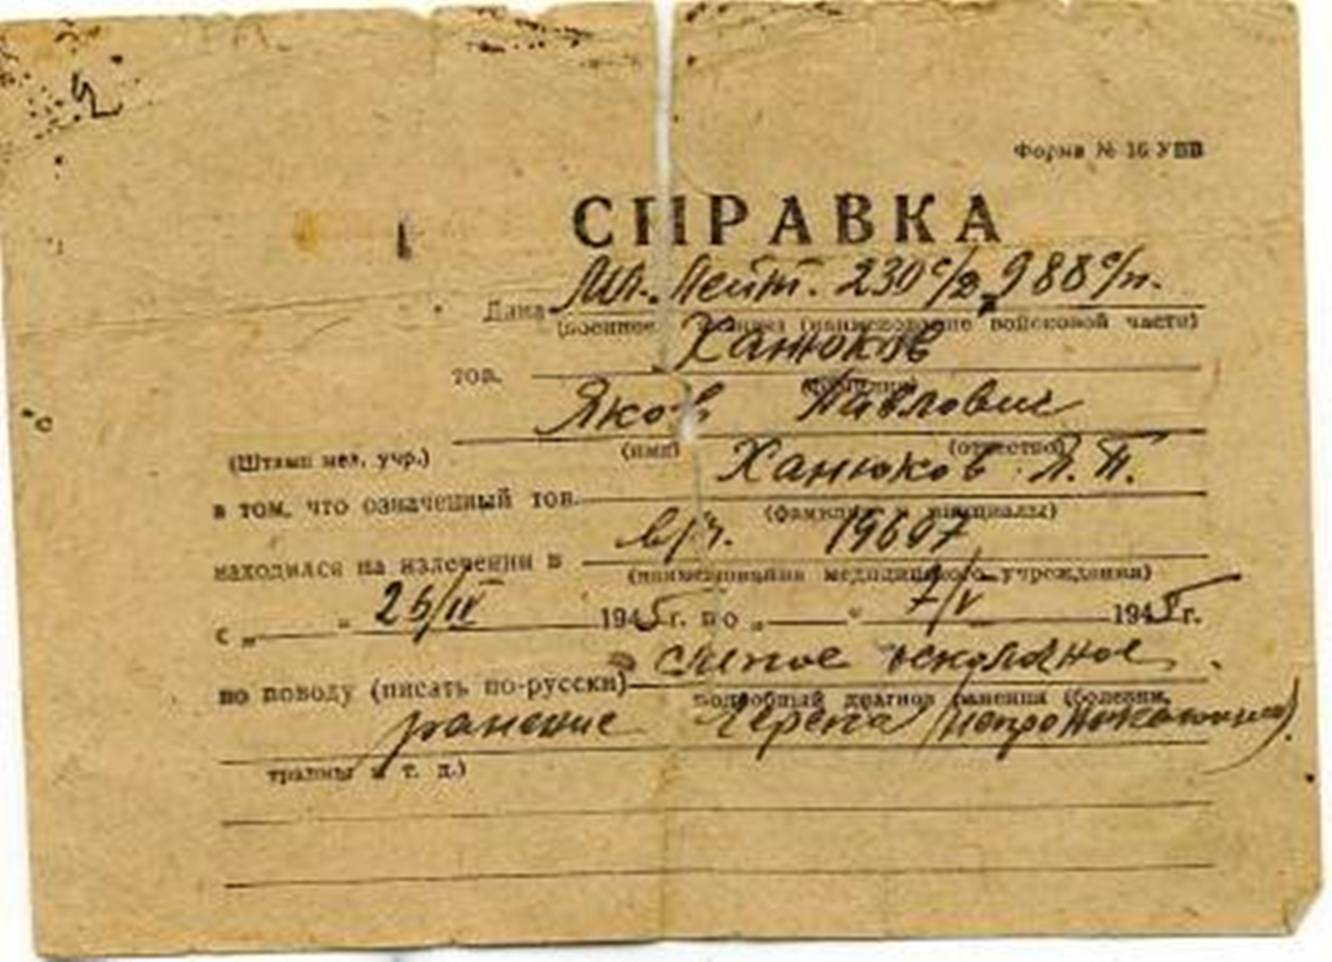 Форма № 16 УПВ
СПРАВКА
Дана Мл. Лейт. 230 с/д, 988 с/п.
(военное звание (наименование войсковой части)
тов. Ханюков
(фамилия)
Яков Павлович
(Штамп мед. учр.) (имя) (отчество)
в том, что означенный тов. Ханюков Я. П.
(фамилия и инициалы)
находился на излечении в 19607
(наименование медицинского учреждения)
с „ “ 25/IV 1945 г. по „ “ 7/V 1945 г.
по поводу (писать по-русски) слепое осколочное
подробный диагноз ранения (болезни,
ранение черепа (непроникающее).
травмы и т. д.)